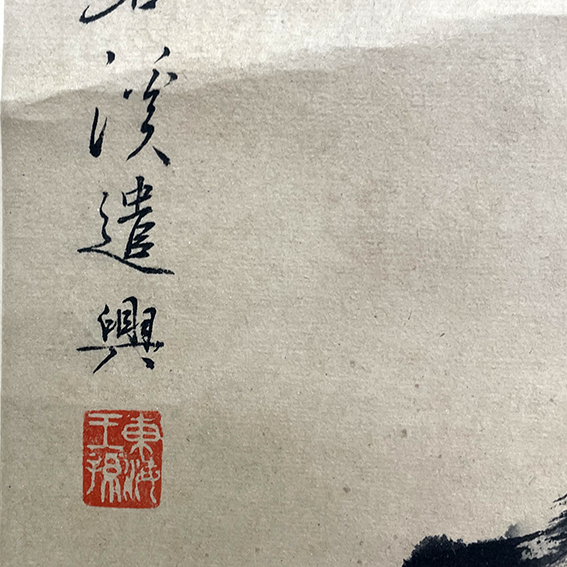 溪遣興
東海
王孫